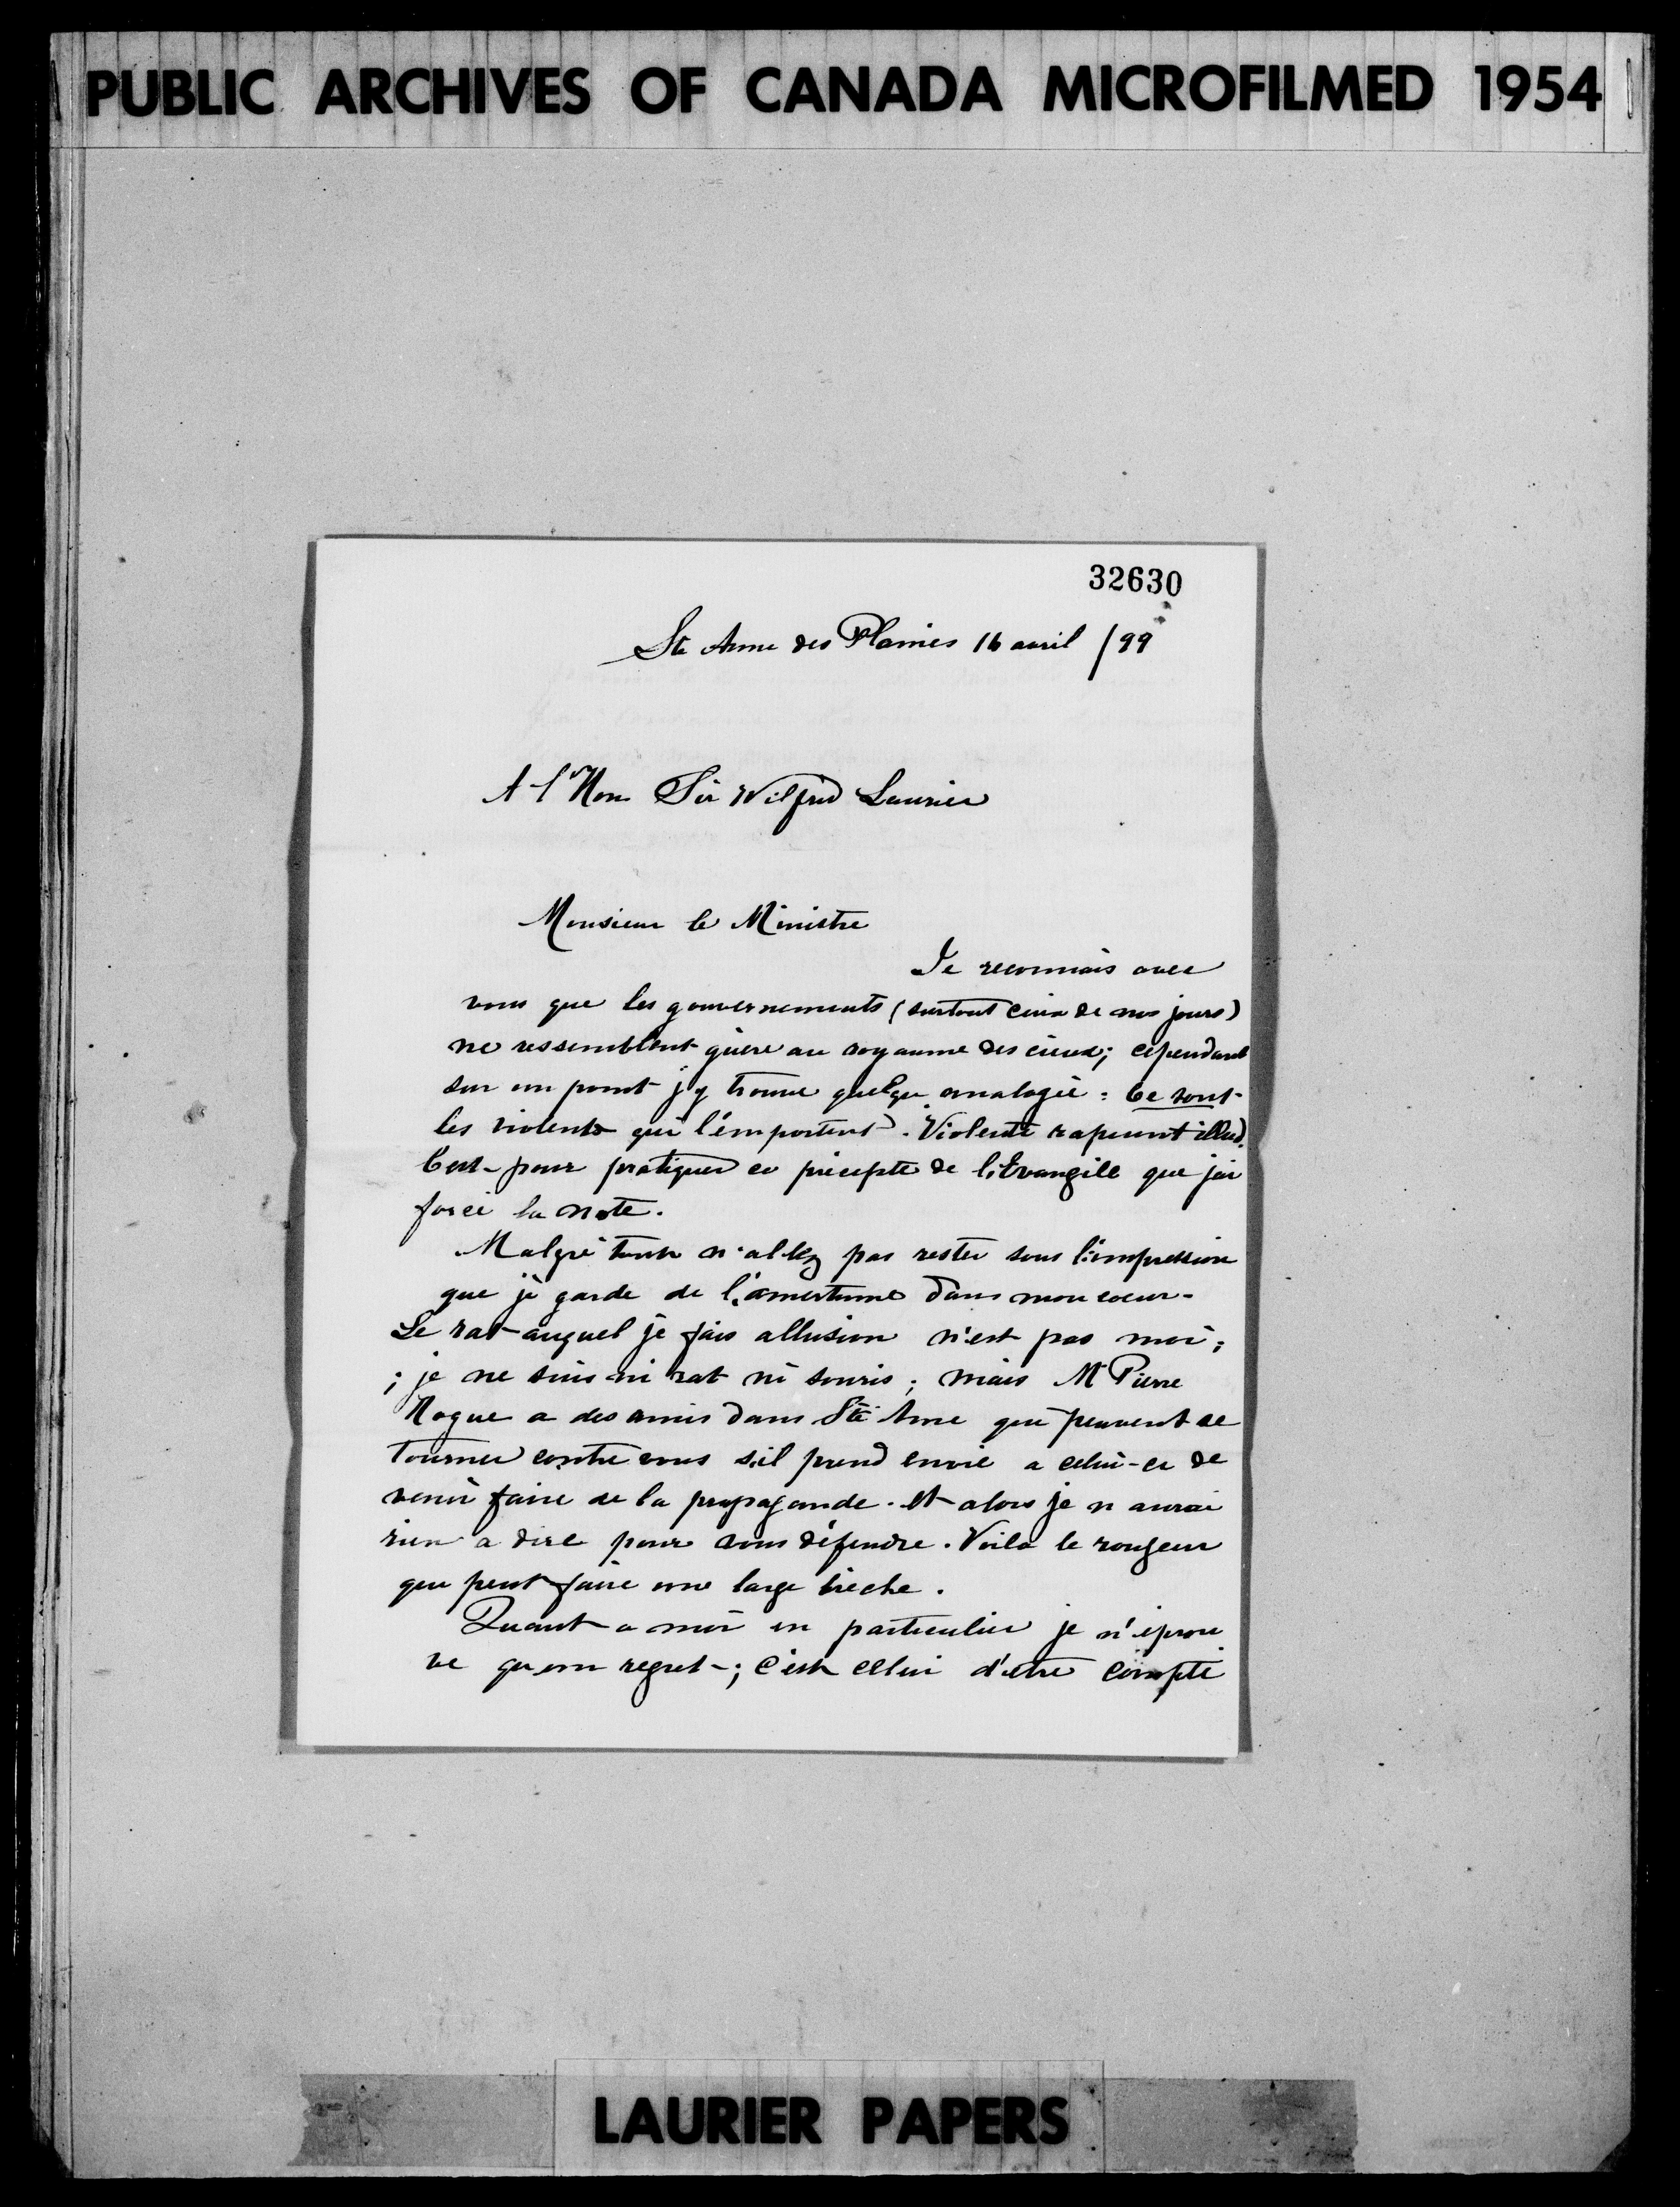 PUBLIC ARCHIVES OF CANADA MICROFILMED 1954
32630
Ste Anne des Plaines 16 avril /99
A l'Hon Sir Wilfrid Laurier
Monsieur le Ministre
Je reconnais avec
vous que les gouvernements (surtout ceux de nos jours)
ne ressemblent guère au royaume des cieux; cependant
sur un point j'y trouve quelque analogie : Ce sont
les violents qui l'emportent. Violenti rapiunt illud.
C'est pour pratiquer ce précepte de l'Evangile que j'ai
forcé la note.
Malgré tout n'allez pas rester sous l'impression
que je garde de l'amertume dans mon coeur.
Le rat auquel je fais allusion n'est pas moi;
; je ne suis ni rat ni souris; mais Mr Pierre
Nogue a des amis dans Ste Anne qui peuvent se
tourner contre vous s'il prend envie a celui-ci de
venir faire de la propagande. et alors je n aurai
rien a dire pour vous défendre. Voila le rongeur
qui peut faire une large brèche.
Quant a moi en particulier je n'éprou
ve qu'un regret; c'est celui d'etre compté
LAURIER PAPERS